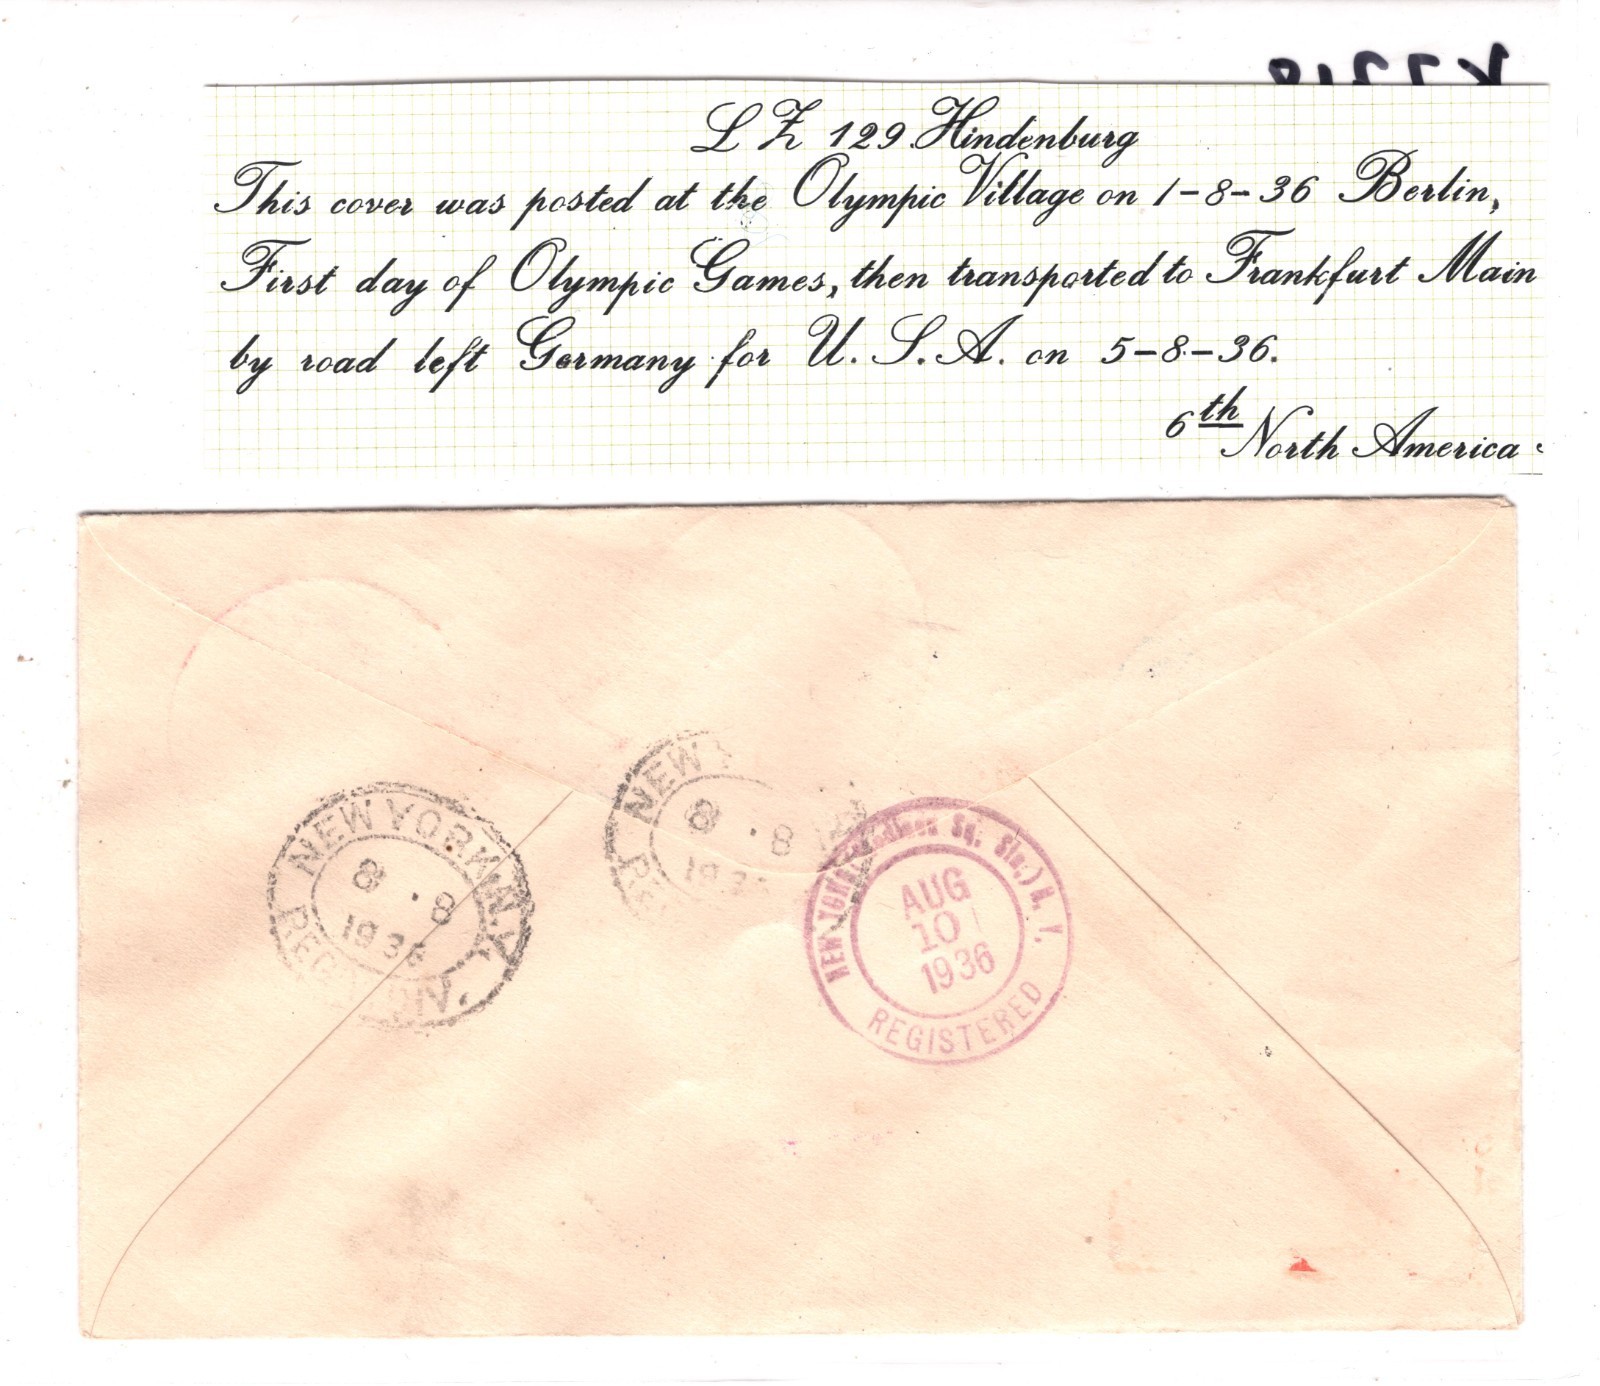 L Z 129 Hindenburg
This cover was posted at the Olympic Village on 1-8-36 Berlin,
First day of Olympic Games, then transported to Frankfurt Main
by road left Germany for U. S. A. on 5-8-36.
6th North America
NEW YORK, N.Y.
8 · 8
1936
REG
NEW Y
8 · 8
1936
NEW YORK, Sq. Sta.) N. Y.
AUG
10
1936
REGISTERED